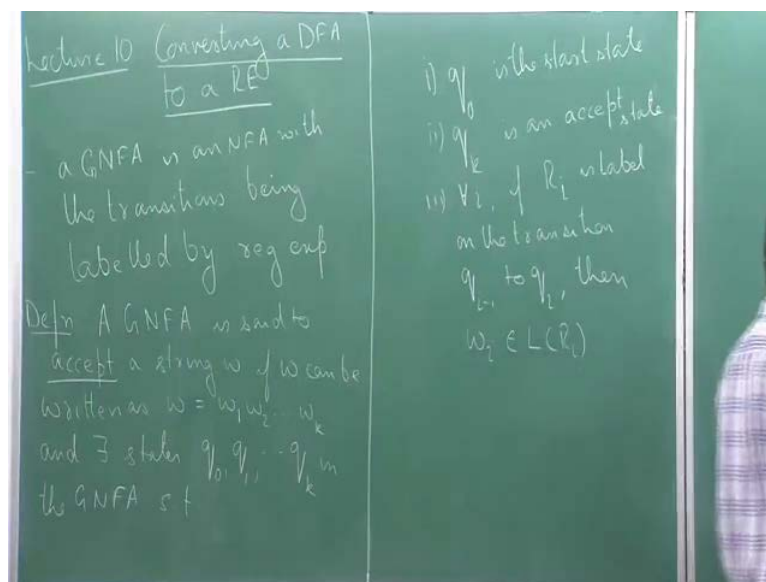 Lecture 10 Converting a DFA
to a RE
- a GNFA is an NFA with
the transitions being
labelled by reg exp
Defn A GNFA is said to
accept a string w if w can be
written as w = w₁w₂...w_k
and ∃ states q₀, q₁, ... q_k in
the GNFA s.t
i) q₀ is the start state
ii) q_k is an accept state
iii) ∀i, if R_i is label
on the transition
q_{i-1} to q_i, then
w_i ∈ L(R_i)